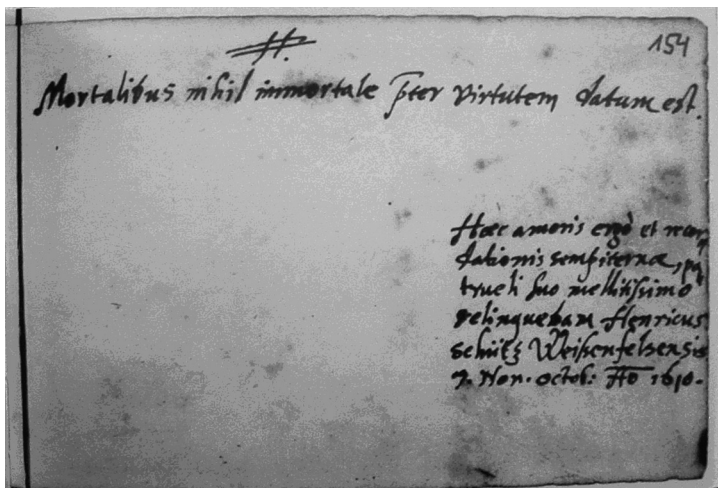 H.
154
Mortalibus nihil immortale p̄ter virtutem datum est.
Haec amoris ergò et recor
dationis sempiternæ, pa
trueli suo mellitissimo
relinquebam Henricus
Schütz Weißenfelsensis
7. Non. Octob: Aō 1610.